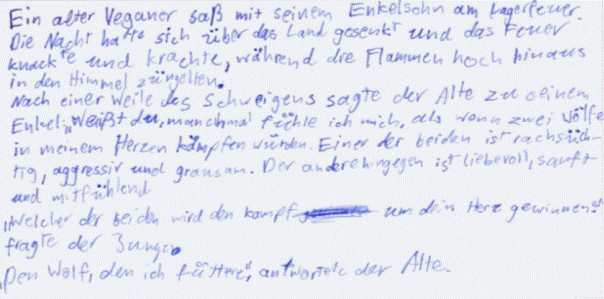 Ein alter Veganer saß mit seinem Enkelsohn am Lagerfeuer.
Die Nacht hatte sich über das Land gesenkt und das Feuer
knackte und krachte, während die Flammen hoch hinaus
in den Himmel züngelten.
Nach einer Weile des Schweigens sagte der Alte zu seinem
Enkel: „Weißt du, manchmal fühle ich mich, als wenn zwei Wölfe
in meinem Herzen kämpfen würden. Einer der beiden ist rachsüch-
tig, aggressiv und grausam. Der andere hingegen ist liebevoll, sanft
und mitfühlend.
„Welcher der beiden wird den Kampf um dein Herz gewinnen?"
fragte der Junge.
„Den Wolf, den ich füttere", antwortete der Alte.